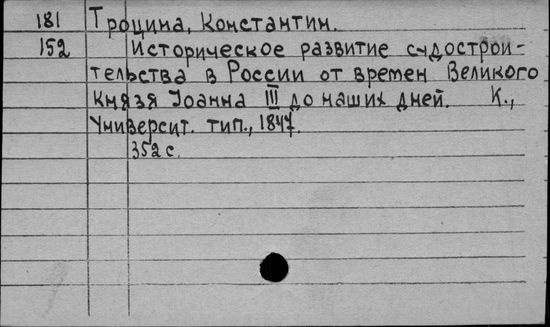 181 Троцина, Константин.
152 Историческое развитие судострои-
тельства в России от времен Великого
Князя Іоанна III до наших дней. К.,
Университ. тип., 1847.
352 с.